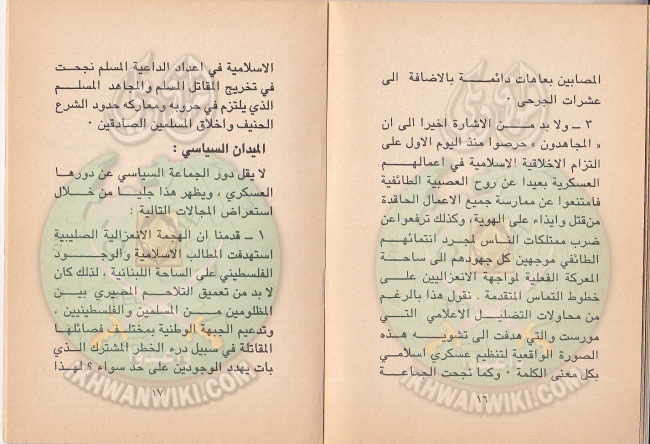 المصابين بعاهات دائمة بالاضافة الى
عشرات الجرحى ٠
٣ ــ ولا بد من الاشارة اخيرا الى ان
« المجاهدون » حرصوا منذ اليوم الاول على
التزام الاخلاقية الاسلامية في اعمالهم
العسكرية بعيدا عن روح العصبية الطائفية
فامتنعوا عن ممارسة جميع الاعمال الحاقدة
من قتل وايذاء على الهوية، وكذلك ترفعوا عن
ضرب ممتلكات الناس لمجرد انتمائهم
الطائفي موجهين كل جهودهم الى ساحة
المعركة الفعلية لمواجهة الانعزاليين على
خطوط التماس المتقدمة . نقول هذا بالرغم
من محاولات التضليل الاعلامي التي
مورست والتي هدفت الى تشويه هذه
الصورة الواقعية لتنظيم عسكري اسلامي
بكل معنى الكلمة ٠ وكما نجحت الجماعة
١٦
الاسلامية في اعداد الداعية المسلم نجحت
في تخريج المقاتل المسلم والمجاهد المسلم
الذي يلتزم في حروبه ومعاركه حدود الشرع
الحنيف واخلاق المسلمين الصادقين ٠
الميدان السياسي :
لا يقل دور الجماعة السياسي عن دورها
العسكري ، ويظهر هذا جليا من خلال
استعراض المجالات التالية :
١ ــ قدمنا ان الهجمة الانعزالية الصليبية
استهدفت المطالب الاسلامية والوجود
الفلسطيني على الساحة اللبنانية ، لذلك كان
لا بد من تعميق التلاحم المصيري بين
المظلومين من المسلمين والفلسطينيين ،
وتدعيم الجبهة الوطنية بمختلف فصائلها
المقاتلة في سبيل درء الخطر المشترك الذي
بات يهدد الوجودين على حد سواء ؟ لهذا
١٧
IKHWANWIKI.COM
IKHWANWIKI.COM